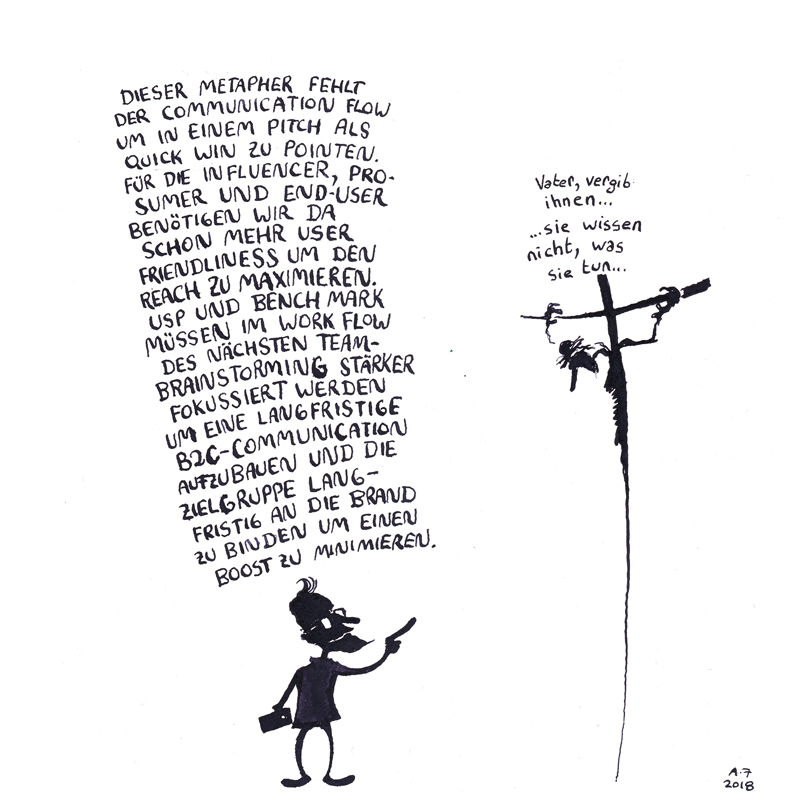 DIESER METAPHER FEHLT
DER COMMUNICATION FLOW
UM IN EINEM PITCH ALS
QUICK WIN ZU POINTEN.
FÜR DIE INFLUENCER, PRO-
SUMER UND END-USER
BENÖTIGEN WIR DA
SCHON MEHR USER
FRIENDLINESS UM DEN
REACH ZU MAXIMIEREN.
USP UND BENCH MARK
MÜSSEN IM WORK FLOW
DES NÄCHSTEN TEAM-
BRAINSTORMING STÄRKER
FOKUSSIERT WERDEN
UM EINE LANGFRISTIGE
B2C-COMMUNICATION
AUFZUBAUEN UND DIE
ZIELGRUPPE LANG-
FRISTIG AN DIE BRAND
ZU BINDEN UM EINEN
BOOST ZU MINIMIEREN.
Vater, vergib
ihnen...
...sie wissen
nicht, was
sie tun...
A.7
2018